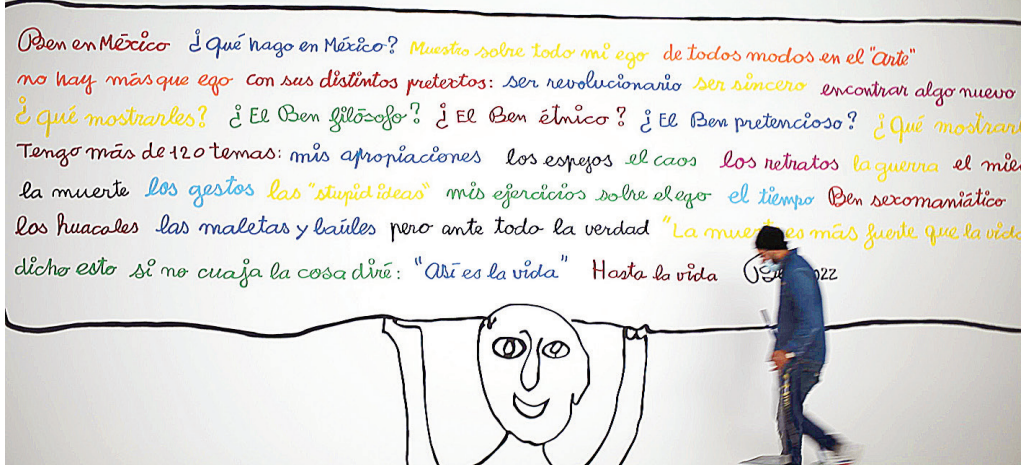 Ben en México ¿Qué hago en México? Muestro sobre todo mi ego de todos modos en el "arte"
no hay más que ego con sus distintos pretextos: ser revolucionario ser sincero encontrar algo nuevo
¿qué mostrarles? ¿El Ben filósofo? ¿El Ben étnico? ¿El Ben pretencioso? ¿Qué mostrarl
Tengo más de 120 temas: mis apropiaciones los espejos el caos los retratos la guerra el mie
la muerte los gestos las "stupid ideas" mis ejercicios sobre el ego el tiempo Ben sexomaniático
los huacales las maletas y baúles pero ante todo la verdad "La muerte es más fuerte que la vida
dicho esto si no cuaja la cosa diré: "Así es la vida" Hasta la vida 22